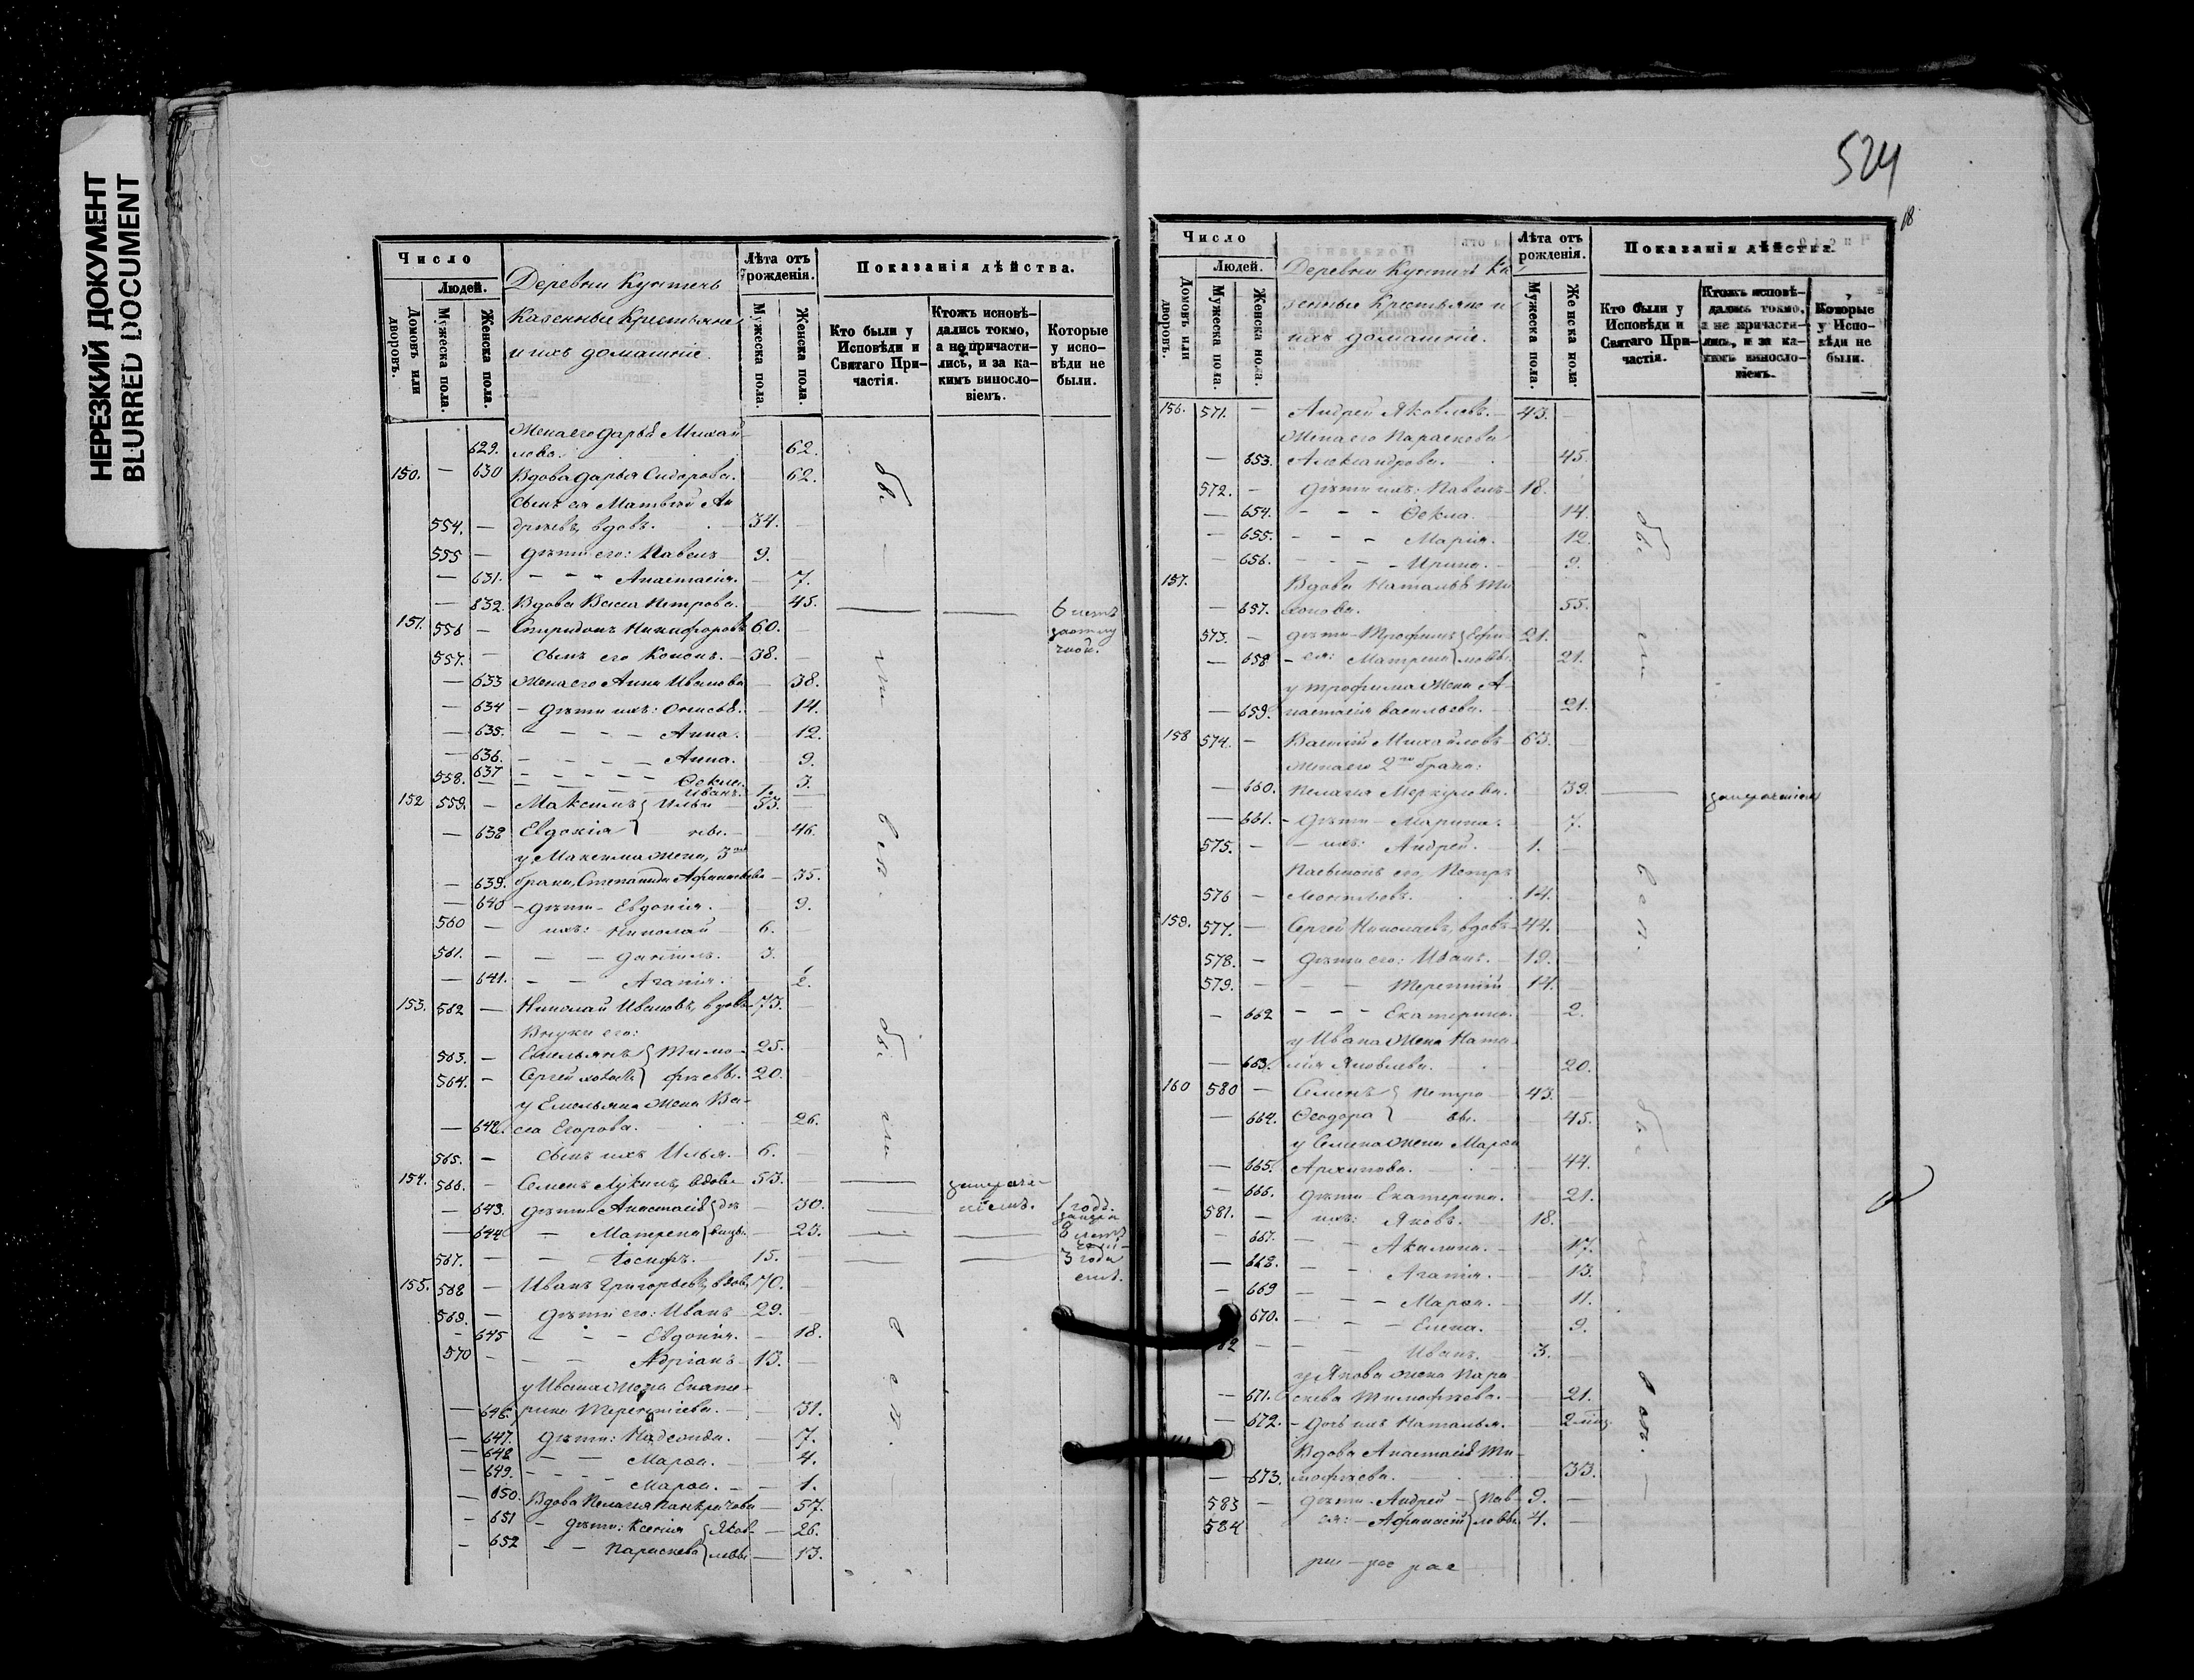 НЕРЕЗКИЙ ДОКУМЕНТ
BLURRED DOCUMENT
Число
Людей.
Домовъ или дворовъ.
Мужеска пола.
Женска пола.
Деревни
Казенные Крестьяне
и ихъ домашніе.
Лѣта отъ рожденія.
Мужеска пола.
Женска пола.
Показанія дѣйства.
Кто были у Исповѣди и Святаго Причастія.
Ктожъ исповѣдались токмо, а не причастились, и за какимъ винословіемъ.
Которые у исповѣди не были.
Жена его Дарья Михай-
629. лова. 62.
150. — 630 Вдова Дарья Сидорова. 62.
Сынъ ея Матвѣй Ан
554. — дреевъ, вдовъ. 34. —
555 — Дѣти его: Павелъ 9.
— 631. - - - Анастасія. 7.
— 632. Вдова Васса Петрова. 45. — — 6 летъ
151. 556 — Спиридонъ Никифоровъ 60. —
557. — Сынъ его Кононъ. — 38. —
— 633 Жена его Анна Иванова 38.
— 634 - Дѣти ихъ: 14.
— 635. - - - - Анна. 12.
— 636. - - - - Анна. 9.
637 - - - - Ѳекла. 3.
558. — Иванъ. 1. —
152 559. — Максимъ } Ильи 53. —
— 638 Евдокія } ны. 46.
у Максима жена, 3го
— 639. брака, Степанида Афанасьева — 35.
— 640 - Дѣти - Евдокія. 9.
560 — ихъ: Николай 6. —
561. — - - Даніилъ. 3. —
— 641. - - Агапія. 2.
153. 562 — Николай Ивановъ, вдовъ 73. —
Внуки его:
563. — Емельянъ { Тимо- 25. —
564. — Сергей холостъ } фѣевы. 20. —
у Емельяна жена Ва-
— 642. са Егорова. 26.
565. — Сынъ ихъ Илья. — 6. —
154. 566. — Семенъ Лукинъ, вдовъ 53. —
— 643. Дѣти Анастасія 30. — 1 годъ.
— 644 - Матрена 23. — — 8 летъ
567. — - Іосифъ. 15. — — 3 года
155. 568 — Иванъ Григорьевъ, вдовъ 70. —
569. — Дѣти его: Иванъ 29. —
— 645 - - - Евдокія. — 18.
570 — - - Адріанъ 13. —
у Ивана жена Екате-
— 646. рина Терентіева. 31.
— 647. Дѣти: Надежда. — 7.
— 648 - - Марѳа. 4.
— 649. - - - Марѳа. 1.
— 650. Вдова Пелагія — 57.
— 651 - Дѣти: Ксенія { Яков- — 26.
— 652 - - Параскева } левы — 13.
были
въ исп.
524
18
Число
Людей.
Домовъ или дворовъ.
Мужеска пола.
Женска пола.
Деревни Ка
зенные Крестьяне и
ихъ домашніе.
Лѣта отъ рожденія.
Мужеска пола.
Женска пола.
Показанія дѣйства.
Кто были у Исповѣди и Святаго Причастія.
Ктожъ исповѣдались токмо, а не причастились, и за какимъ винословіемъ.
Которые у Исповѣди не были.
156. 571. — Андрей Яковлевъ. — 43. —
Жена его Параскева
— 653. Александрова. 45.
572. — Дѣти ихъ: Павелъ 18. —
— 654. - - - Ѳекла. 14.
— 655. - - - Марія. 12.
— 656. - - - Ирина. 9.
157. Вдова Наталья Ти
— 657. хонова. 55.
573. — Дѣти Трофимъ { Ефи- 21. —
— 658 - ея: Матрена } мовы. 21.
у Трофима жена А-
— 659. настасія Васильева. 21.
158 574. — Василій Михайловъ 63. —
Жена его 2го брака:
— 660. Пелагія Меркулова. 39. —
— 661. - Дѣти - Марина. 7.
575. — - ихъ: Андрей. 1. —
Пасынокъ его, Петръ
576 — 14. —
159. 577. — Сергей Николаевъ, вдовъ 44. —
578. — Дѣти его: Иванъ. — 19. —
579. — - - Терентій 14. —
— 662 - - - Екатерина. 2.
у Ивана жена Ната-
— 663. лія Яковлева. 20.
160 580 — Семенъ { Петро 43. —
— 664. Ѳеодора } вы. 45.
у Семена жена Марѳа
— 665. Архипова. 44.
— 666. Дѣти Екатерина. 21.
581. — ихъ: Яковъ. 18. —
— 667. - - Акилина. 17.
— 668. - - Агапія. 13.
— 669 - - - Марѳа. 11.
— 670. - - - Елена. 9.
82 — - - Иванъ. 3. —
у Якова жена Пара
— 671. скева Тимофѣева. 21.
— 672. - Дочь ихъ Наталья. 2 мѣс.
Вдова Анастасія Ти-
— 673. мофѣева. 33.
583 — Дѣти Андрей { Пав- 9. —
584 ея: Афанасій } ловы 4. —
были
въ исп.